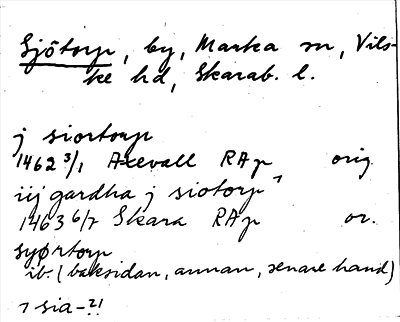 Sjötorp, by, Marka sn, Vils-
ke hd, Skarab. l.
j siortorp
1462 3/1 Axevall RAp orig.
iij gardha j siotorp ⁊
1463 6/7 Skara RAp or.
syørtorp
ib. (baksidan, annan, senare hand)
⁊ sia- ?!